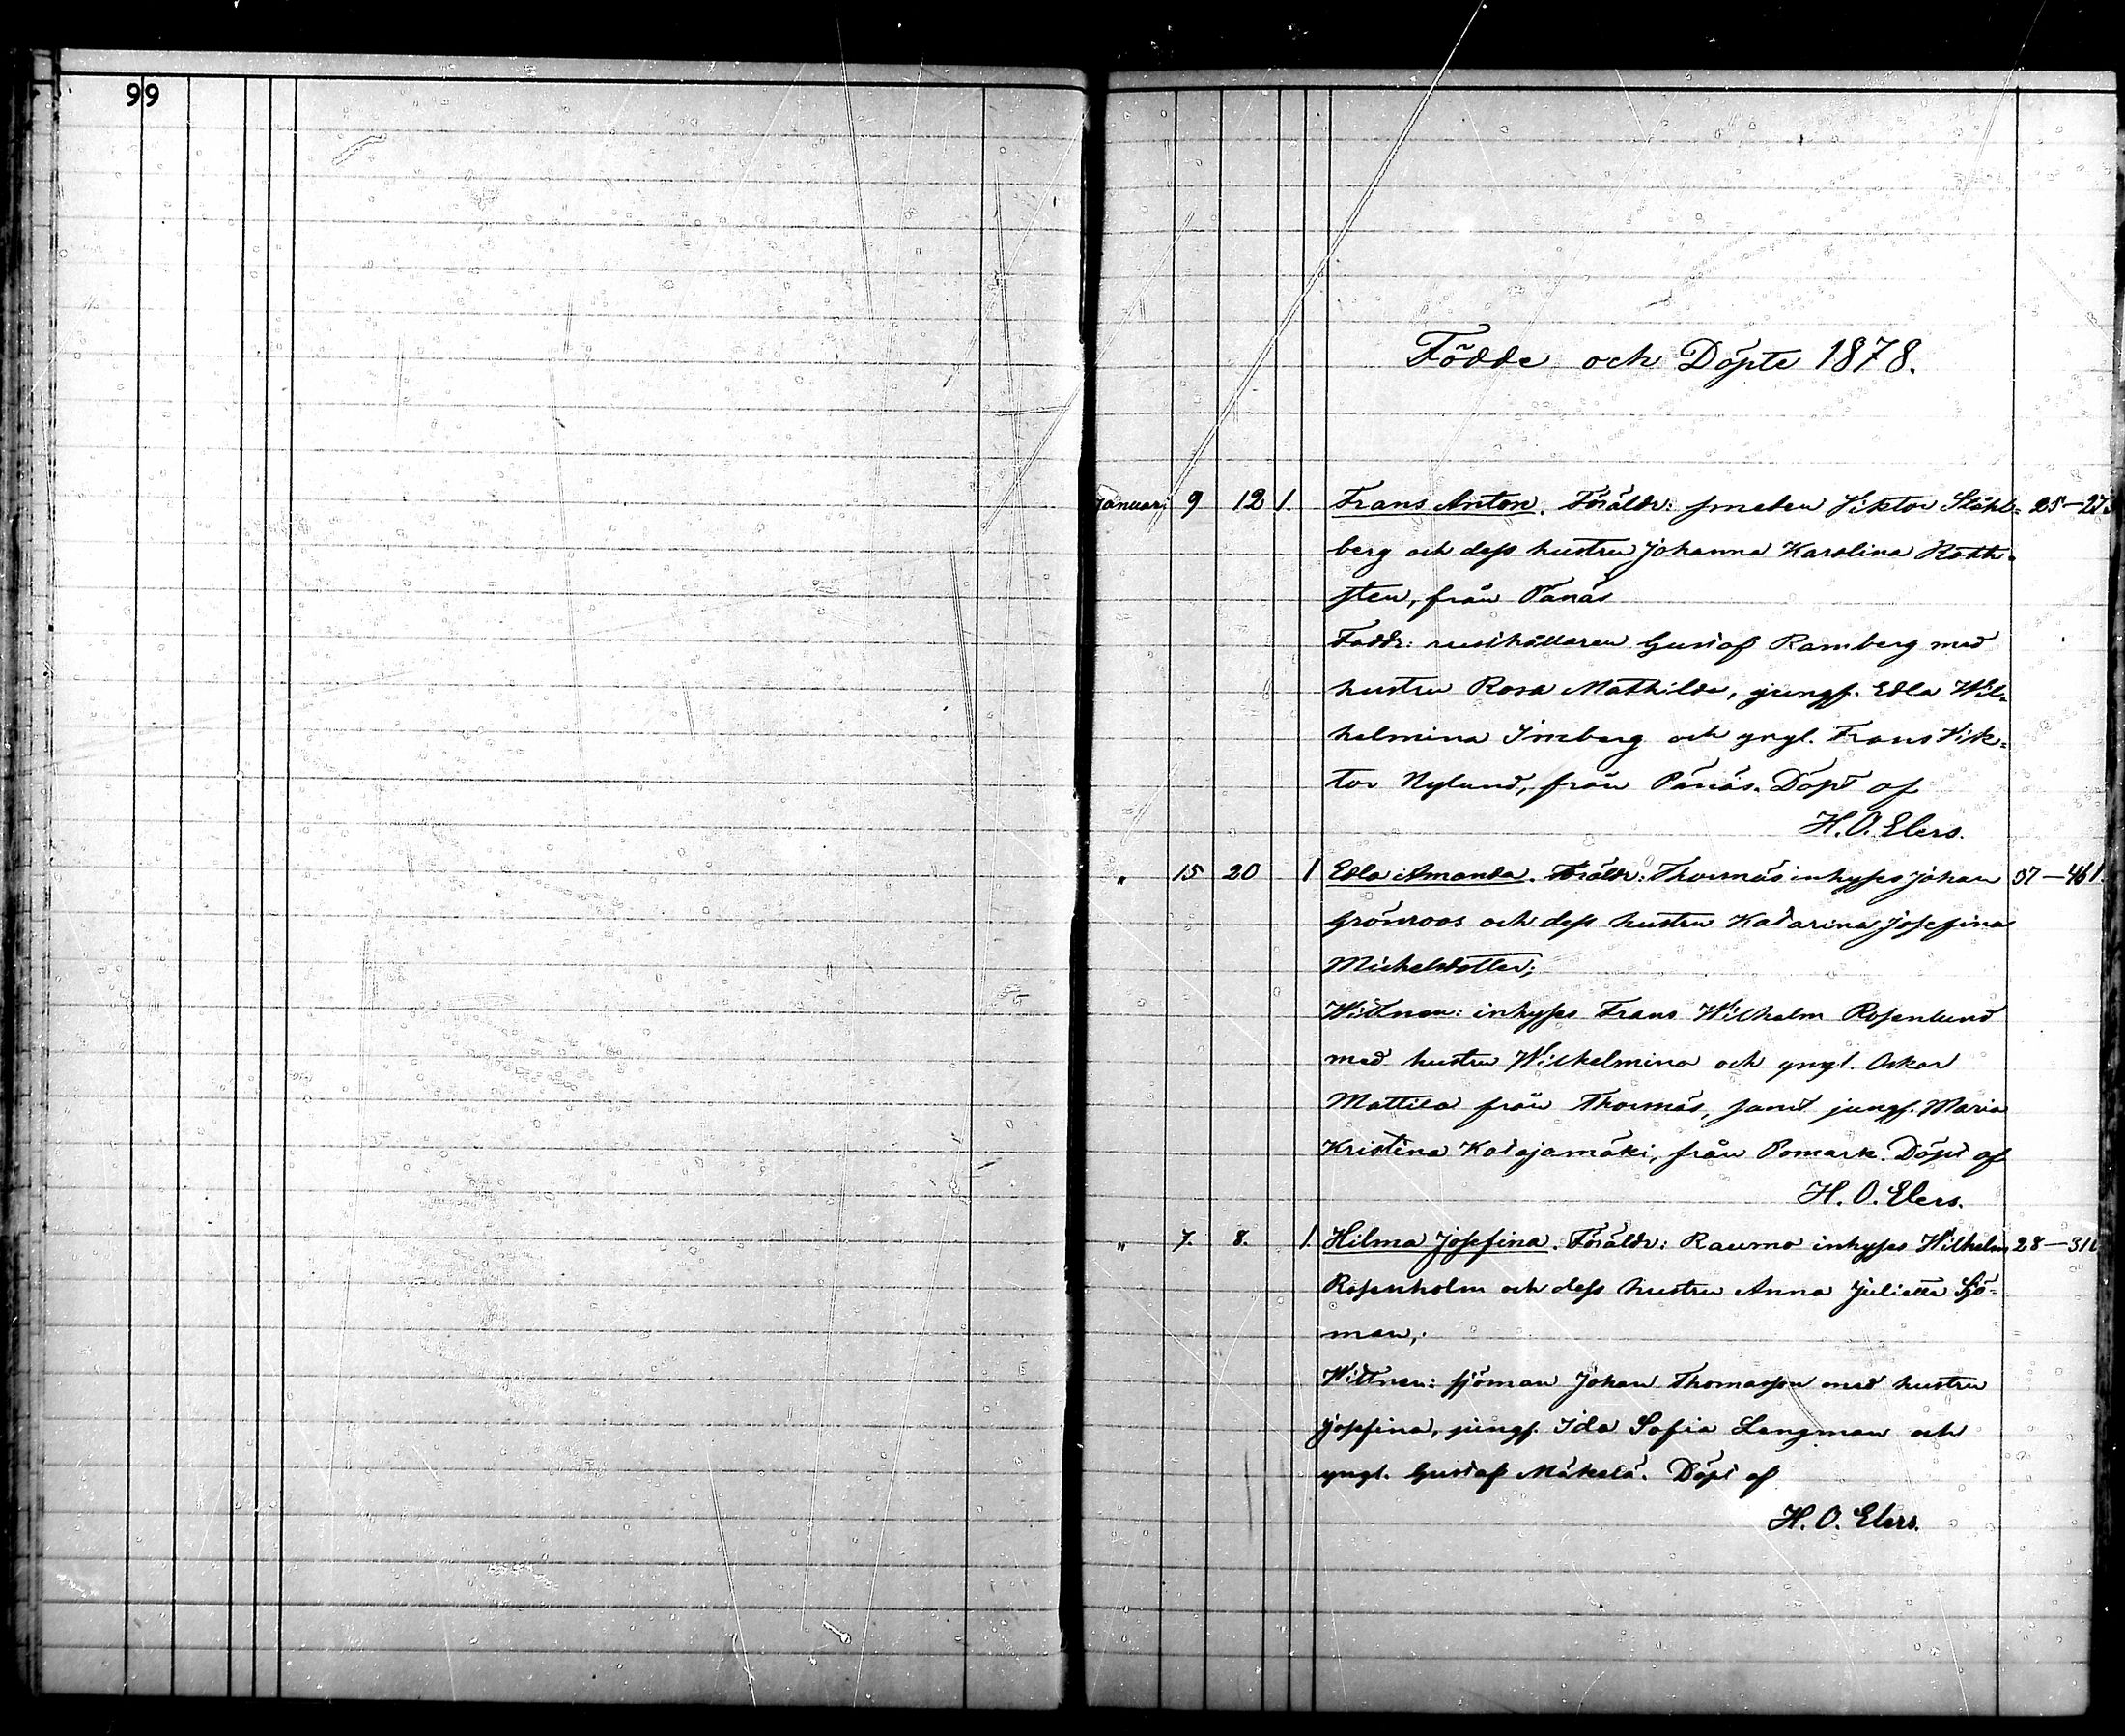 99
Födde och Döpte 1878.
Januari 9 12 1. Frans Anton. Föräldr: smeden Viktor Ståhl= 25-27
berg och dess hustru Johanna Karolina Roth=
sten, från Pänäs
Faddr: rusthållaren Gustaf Ramberg med
hustru Rosa Mathilda, jungf. Edla Wil=
helmina Imeberg och yngl. Frans Vik=
tor Nylund, från Pänäs. Döpt af
H. O. Elers.
" 15 20 1 Edla Amanda. Föräldr: Thornäs inhyses Johan 37-461.
Grönroos och dess hustru Katarina Josefina
Michelsdotter;
Wittnen: inhyses Frans Wilhelm Rosenlund
med hustru Wilhelmina och yngl. Oskar
Mattila från Thornäs, samt jungf. Maria
Kristina Katajamäki, från Pomark. Döpt af
H. O. Elers.
" 7. 8. 1. Hilma Josefina. Föräldr: Raumo inhyses Wilhelm 28-31
Rosenholm och dess hustru Anna Julietta Sjö=
man,
Wittnen: sjöman Johan Thomasson med hustru
Josefina, jungf. Ida Sofia Langman och
yngl. Gustaf Mäkelä. Döpt af
H. O. Elers.